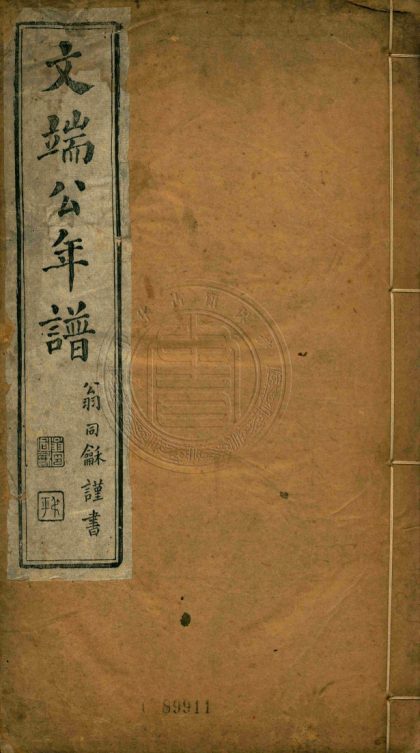 文端公年譜
翁同龢謹書
89911